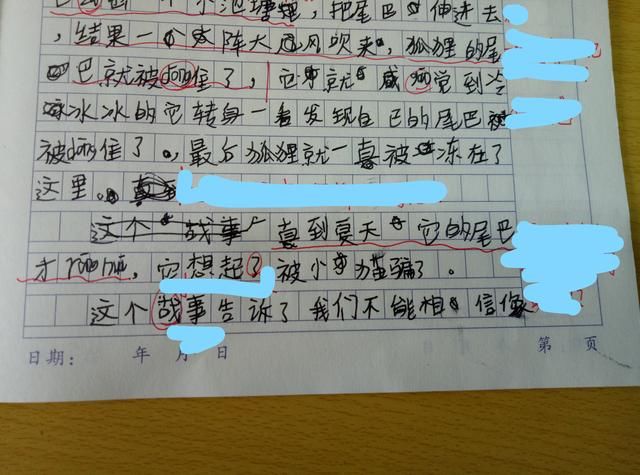 个池塘里,把尾巴伸进去
,结果一个大阵大风吹来,狐狸的尾
巴就被dòng住了,它就感觉到冷
冰冰的它转身一看发现自己的尾巴被
被dòng住了。,最后狐狸就一直被冻在了
这里。
这个故事直到夏天它的尾巴
才róng,它想起了被小猫骗了。
这个故事告诉了我们不能相信像
日期: 年 月 日 第 页